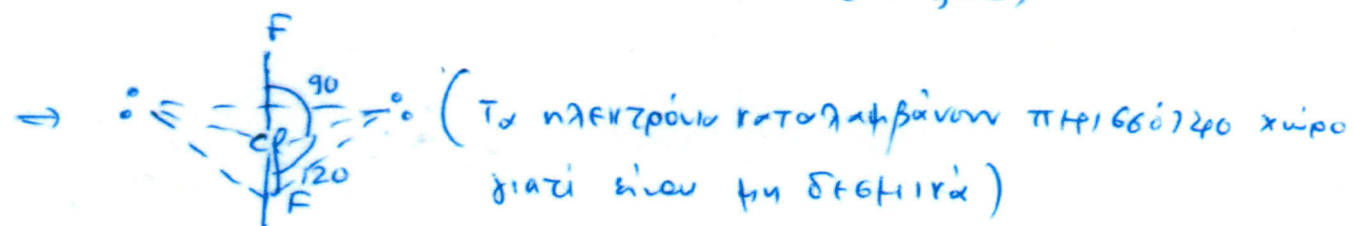 F
90
⇔ : Cl : (Τα ηλεκτρόνια καταλαμβάνουν περισσότερο χώρο
120
F γιατί είναι μη δεσμικά)